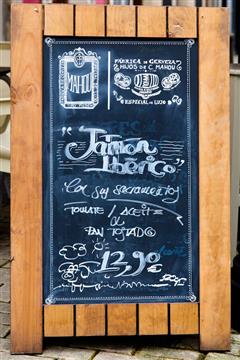 MAHOU
FABRICA DE CERVEZA
HIJOS DE C. MAHOU
ESPECIAL DE LUJO
"Jamon
Ibérico"
Con sus sacramentos
TOMATE / ACEITE
PAN TOSTADO
13,90€